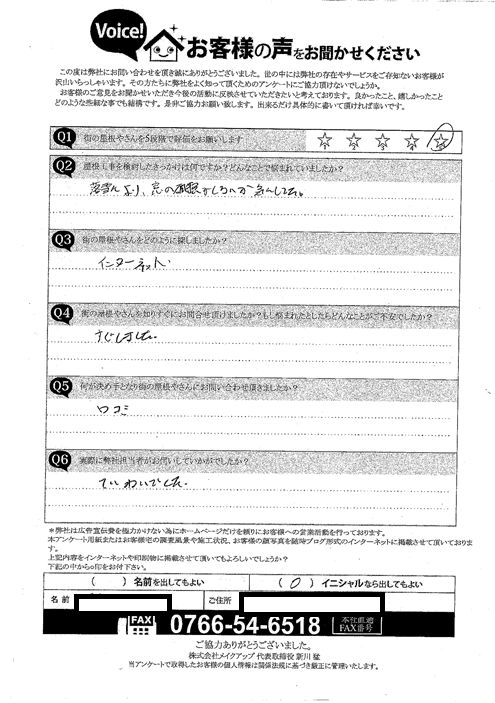 Voice!
お客様の声をお聞かせください
この度は弊社にお問い合わせを頂き誠にありがとうございました。世の中には弊社の存在やサービスをご存知ないお客様が
沢山いらっしゃいます。その方たちに弊社をよく知って頂くためのアンケートにご協力頂けないでしょうか。
お客様のご意見をお聞かせいただき今後の活動に反映させていただきたいと考えております。良かったこと、嬉しかったこと
どのような些細な事でも結構です。是非ご協力お願い致します。出来るだけ具体的に書いて頂ければ幸いです。
Q1 街の屋根やさんを5段階で評価をお願いします
Q2 屋根工事を検討したきっかけは何ですか?どんなことで悩まれていましたか?
Q3 街の屋根やさんをどのように探しましたか?
インターネット
Q4 街の屋根やさんを知りすぐにお問合せ頂けましたか?もし悩まれたとしたらどんなことがご不安でしたか?
すぐしました
Q5 何が決め手となり街の屋根やさんにお問い合わせ頂きましたか?
口コミ
Q6 実際に弊社担当者がお伺いしていかがでしたか?
ていねいでした
*弊社は広告宣伝費を極力かけない為にホームページだけを頼りにお客様への営業活動を行っております。
本アンケート用紙またはお客様宅の調査風景や施工状況、お客様の顔写真を随時ブログ形式のインターネットに掲載させて頂いております。
上記内容をインターネットや印刷物に掲載させて頂いてもよろしいでしょうか?
下記の中から○印をお付下さい。
( ) 名前を出してもよい ( ○ ) イニシャルなら出してもよい
名前 ご住所
FAX 0766-54-6518 本社直通 FAX番号
ご協力ありがとうございました。
株式会社メイクアップ 代表取締役 新川 猛
当アンケートで取得したお客様の個人情報は関係法規に基づき厳正に管理いたします。